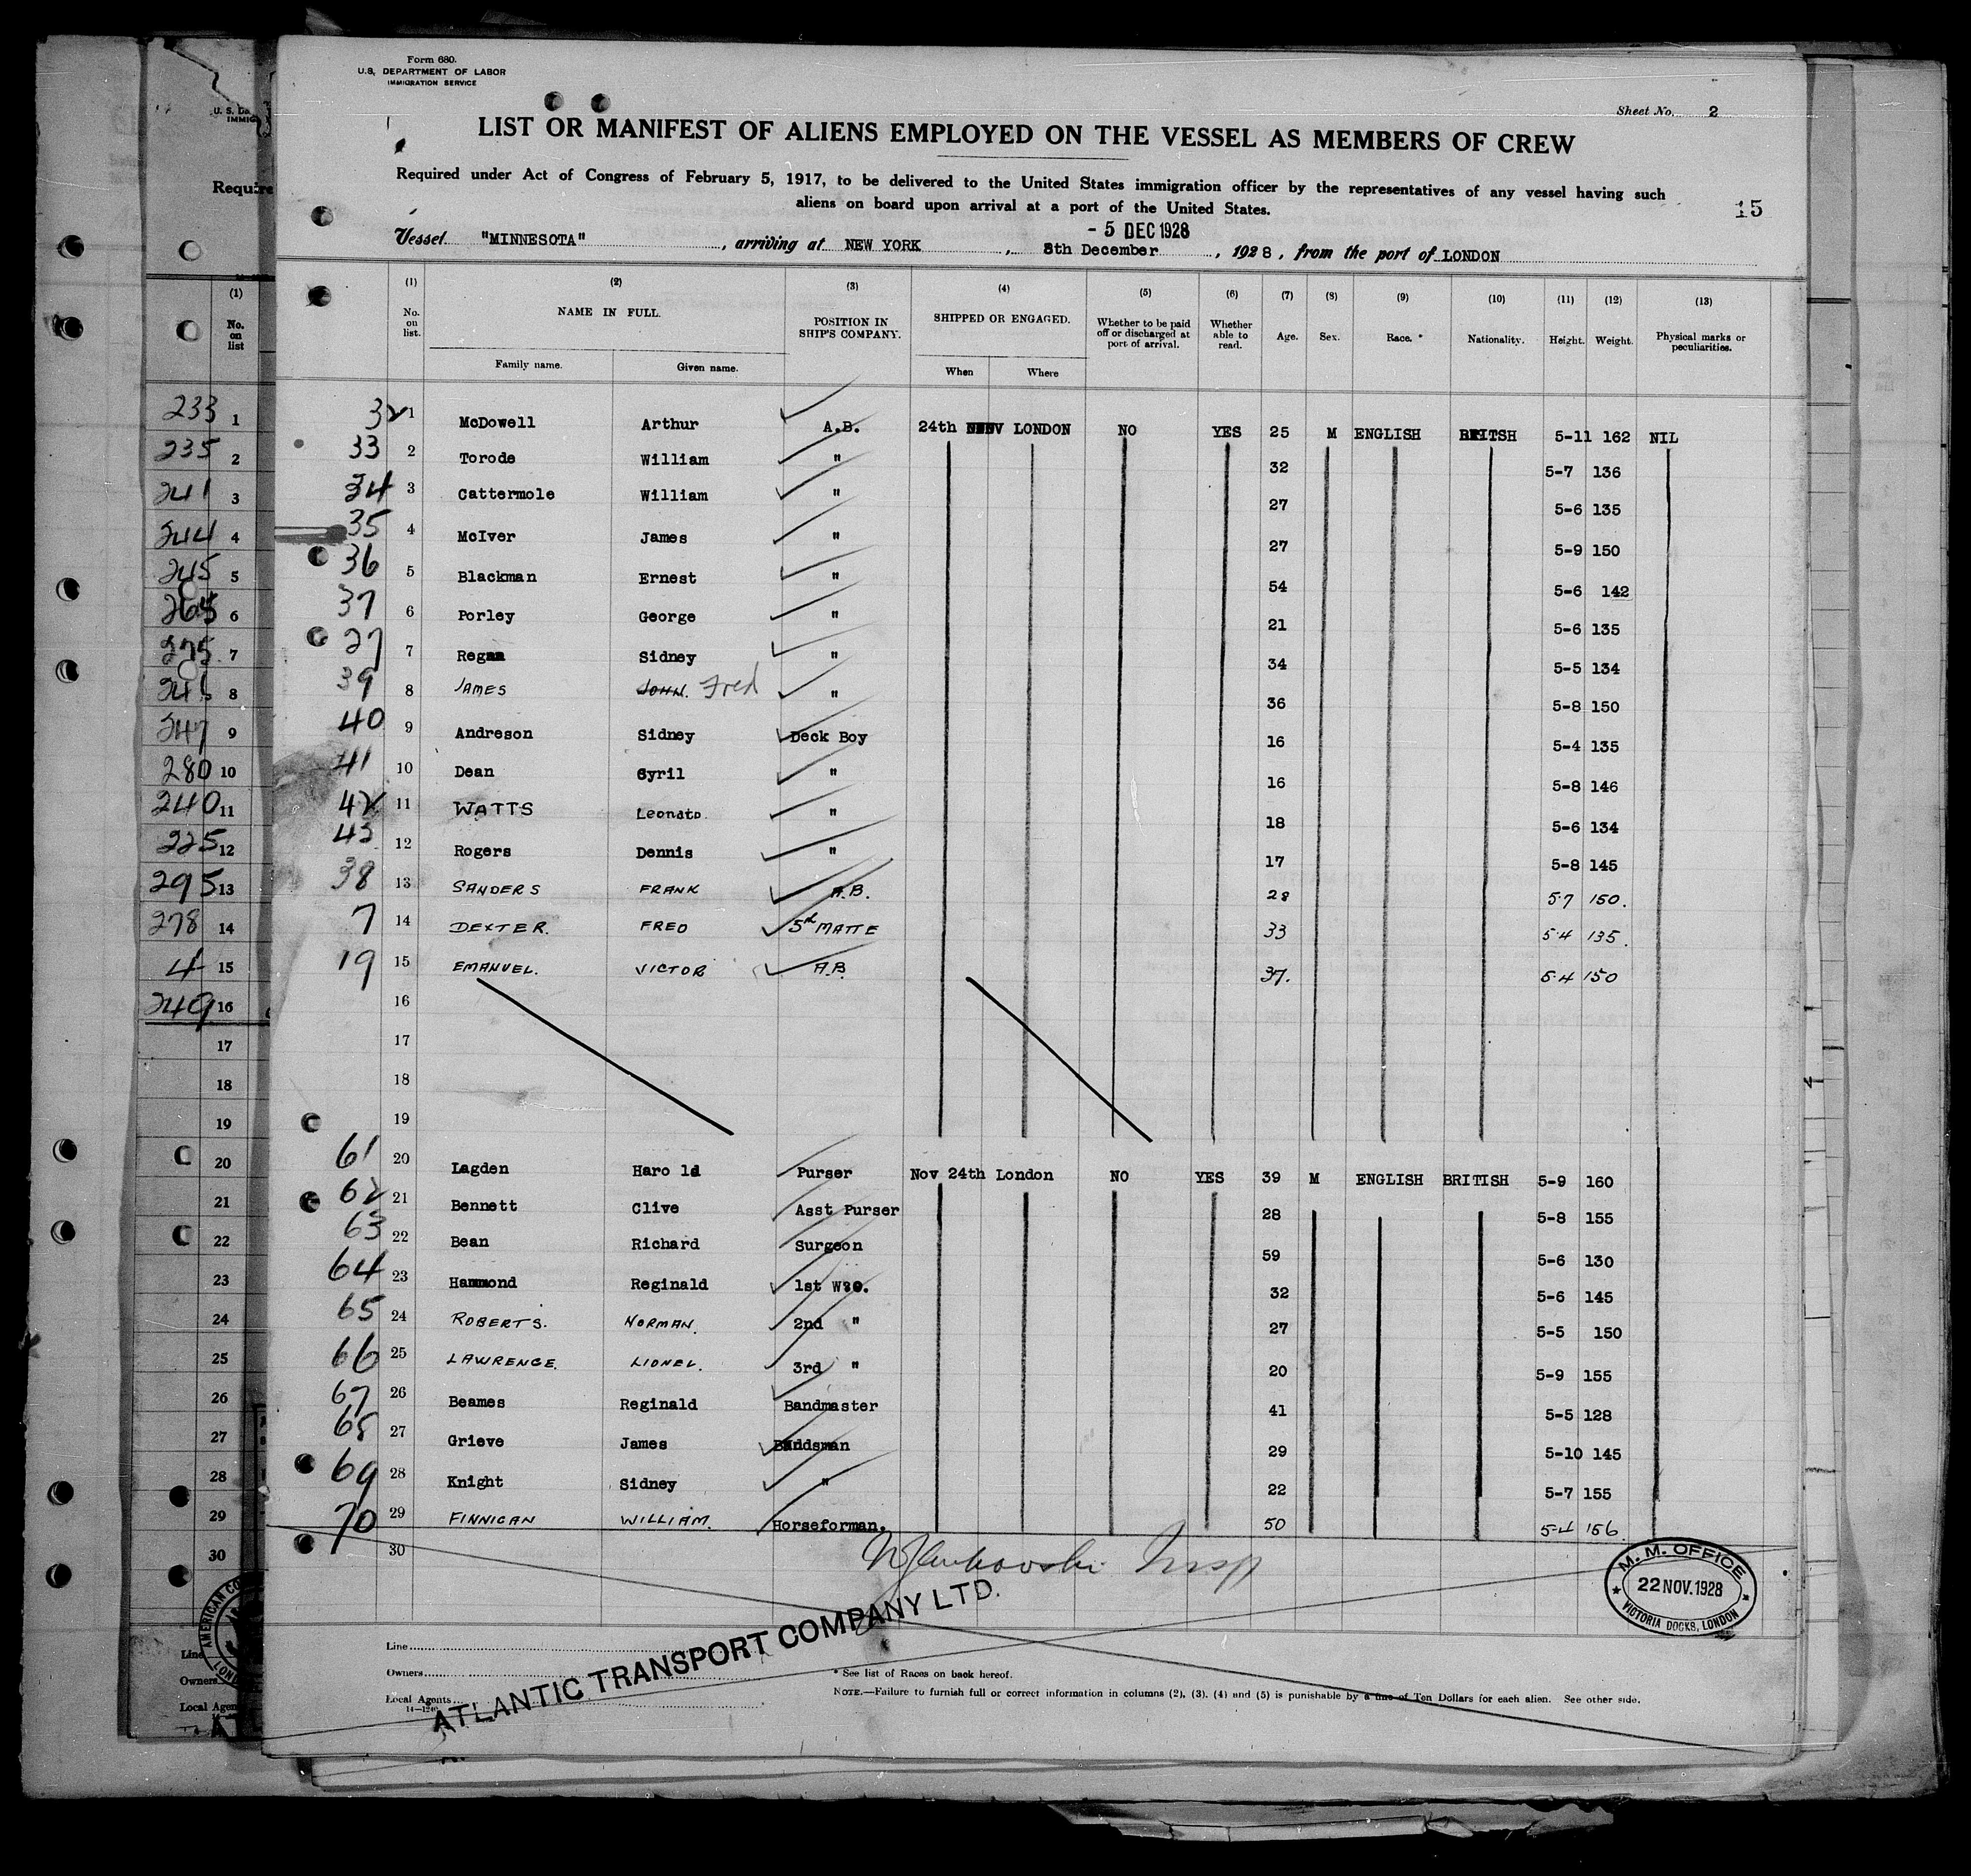 Form 680.
U.S. DEPARTMENT OF LABOR
IMMIGRATION SERVICE
Sheet No. 2
LIST OR MANIFEST OF ALIENS EMPLOYED ON THE VESSEL AS MEMBERS OF CREW
Required under Act of Congress of February 5, 1917, to be delivered to the United States immigration officer by the representatives of any vessel having such
aliens on board upon arrival at a port of the United States.
15
- 5 DEC 1928
Vessel "MINNESOTA", arriving at NEW YORK, 8th December, 1928, from the port of LONDON
(1) (2) (3) (4) (5) (6) (7) (8) (9) (10) (11) (12) (13)
No. on list. NAME IN FULL. POSITION IN SHIP'S COMPANY. SHIPPED OR ENGAGED. Whether to be paid off or discharged at port of arrival. Whether able to read. Age. Sex. Race. * Nationality. Height. Weight. Physical marks or peculiarities.
Family name. Given name. When Where
32 1 McDowell Arthur A.B. 24th NOV LONDON NO YES 25 M ENGLISH BRITSH 5-11 162 NIL
33 2 Torode William " 32 5-7 136
34 3 Cattermole William " 27 5-6 135
35 4 McIver James " 27 5-9 150
36 5 Blackman Ernest " 54 5-6 142
37 6 Porley George " 21 5-6 135
27 7 Regan Sidney " 34 5-5 134
39 8 JAMES JOHN. Fred " 36 5-8 150
40 9 Andreson Sidney Deck Boy 16 5-4 135
41 10 Dean Cyril " 16 5-8 146
42 11 WATTS Leonato " 18 5-6 134
43 12 Rogers Dennis " 17 5-8 145
38 13 SANDERS FRANK A.B. 28 5·7 150.
7 14 DEXTER. FRED 5th MATTE 33 5·4 135.
19 15 EMANUEL. VICTOR A.B. 37. 5·4 150
16
17
18
19
61 20 Lagden Haro ld Purser Nov 24th London NO YES 39 M ENGLISH BRITISH 5-9 160
62 21 Bennett Clive Asst Purser 28 5-8 155
63 22 Bean Richard Surgeon 59 5-6 130
64 23 Hammond Reginald 1st W.O. 32 5-6 145
65 24 ROBERTS. NORMAN. 2nd " 27 5-5 150
66 25 LAWRENCE. LIONEL. 3rd " 20 5-9 155
67 26 Beames Reginald Bandmaster 41 5-5 128
68 27 Grieve James Bandsman 29 5-10 145
69 28 Knight Sidney " 22 5-7 155
70 29 FINNIGAN WILLIAM. Horseforman. 50 5-4 156
30
Insp
M. M. OFFICE
22 NOV. 1928
VICTORIA DOCKS, LONDON
Line
Owners
Local Agents
ATLANTIC TRANSPORT COMPANY LTD.
* See list of Races on back hereof.
NOTE.—Failure to furnish full or correct information in columns (2), (3), (4) and (5) is punishable by a fine of Ten Dollars for each alien. See other side.
(1)
No. on list
233 1
235 2
241 3
244 4
245 5
6
275 7
8
247 9
280 10
240 11
225 12
295 13
278 14
4 15
249 16
17
18
19
20
21
22
23
24
25
26
27
28
29
30
Line
Owners
Local Agen